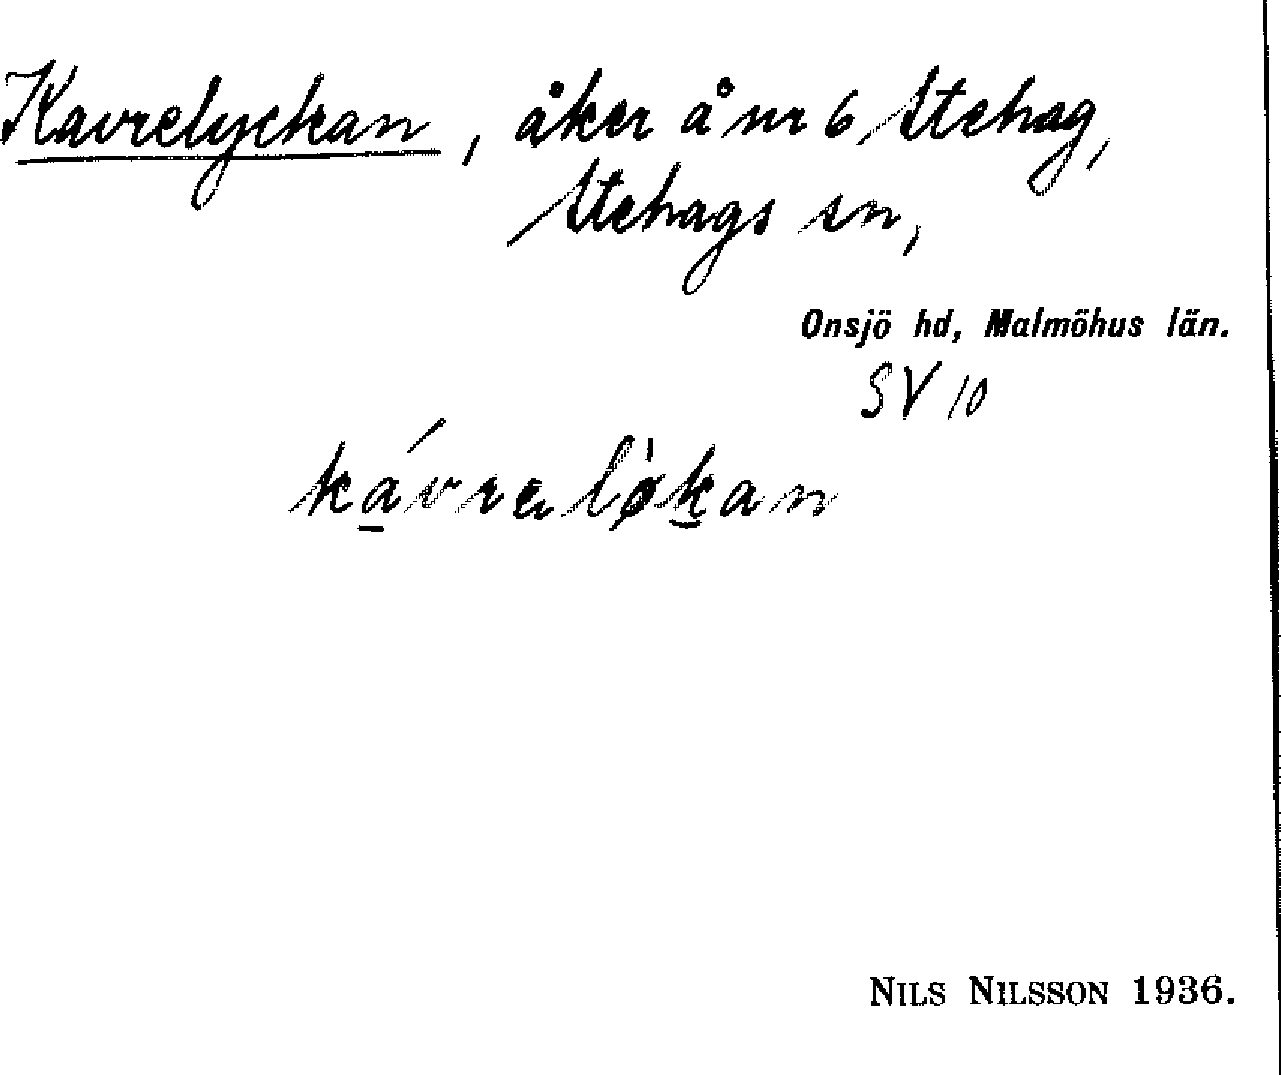 Kavrelyckan, åker å nr 6 Stehag,
Stehags sn,
Onsjö hd, Malmöhus län.
SV 10
kávrəlø̀kan
NILS NILSSON 1936.